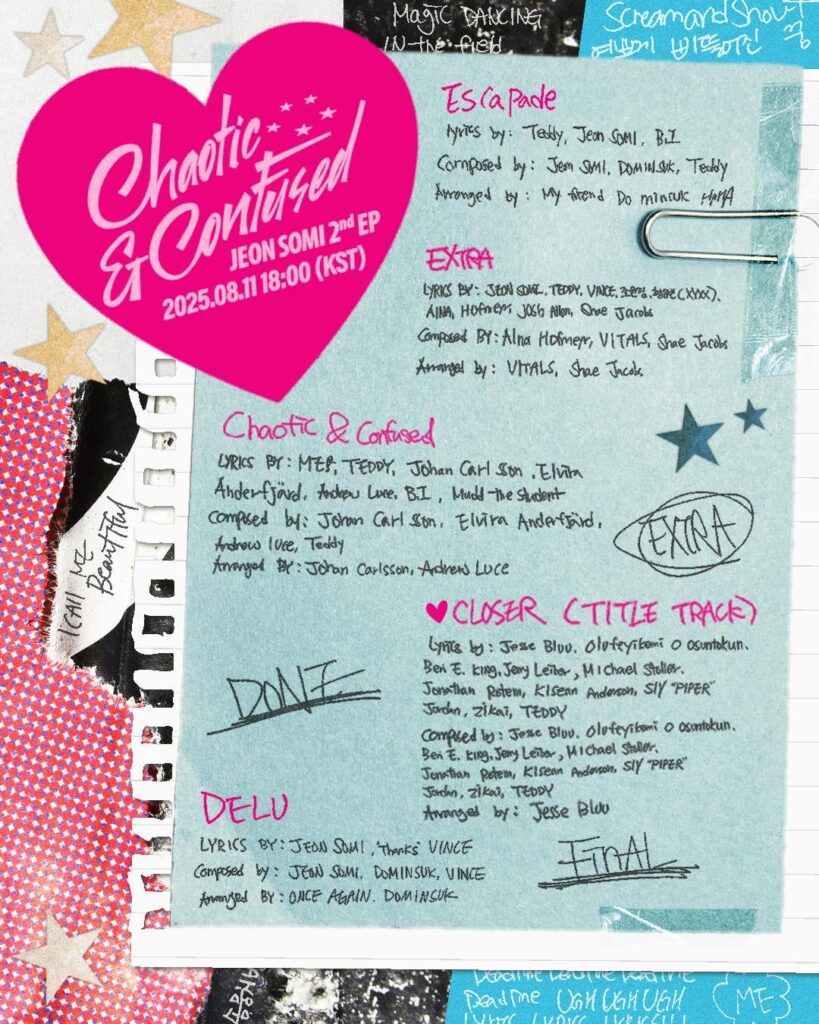 Magic DANCING
IN the field
Scream and Shout
Chaotic
& Confused
JEON SOMI 2nd EP
2025.08.11 18:00 (KST)
Escapade
Lyrics by: Teddy, Jeon SOMI, B.I
Composed by: Jeon SOMI, DOMINSUK, Teddy
Arranged by: My friend Do minsuk HAHA
EXTRA
LYRICS BY: JEON SOMI, TEDDY, VINCE, (XYXX),
AINA, Hofmeyr Josh Allen, Shae Jacobs
Composed BY: Aina Hofmeyr, VITALS, Shae Jacobs
Arranged by: VITALS, Shae Jacobs
Chaotic & Confused
LYRICS BY: TEDDY, Johan Carlsson, Elvira
Anderfjärd, Andrew Luce, B.I, Mudd the student
Composed by: Johan Carlsson, Elvira Anderfjärd,
Andrew luce, Teddy
Arranged BY: Johan Carlsson, Andrew Luce
EXTRA
I CAll ME
Beautiful
♥ CLOSER (TITLE TRACK)
Lyrics by: Jesse Bluu, Olufeyikemi O Osuntokun.
Ben E. King, Jerry Leiber, Michael Stoller.
Jonathan Rotem, Kisean Anderson, SlY "PIPER"
Jordan, Zikai, TEDDY
Composed by: Jesse Bluu. Olufeyikemi O Osuntokun.
Ben E. King, Jerry Leiber, Michael Stoller.
Jonathan Rotem, Kisean Anderson, SlY "PIPER"
Jordan, Zikai, TEDDY
Arranged by: Jesse Bluu
DONE
DELU
LYRICS BY: JEON SOMI, "thanks" VINCE
Composed by: JEON SOMI, DOMINSUK, VINCE
Arranged BY: ONCE AGAIN. DOMINSUK
FINAL
Deadline Deadline Deadline
Deadline UGH UGH UGH
LYRICS LYRICS
ME